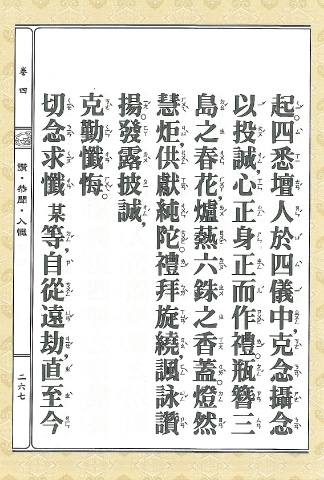 起。四悉壇人於四儀中克念攝念
以投誠，心正身正而作禮。瓶簪三
島之春花，爐爇六銖之香蓋。燈然
慧炬，供獻純陀。禮拜旋繞，諷詠讚
揚。發露披誠，
克勤懺悔。
切念求懺某等，自從遠劫，直至今
卷四
讚·恭聞·入懺
二六七